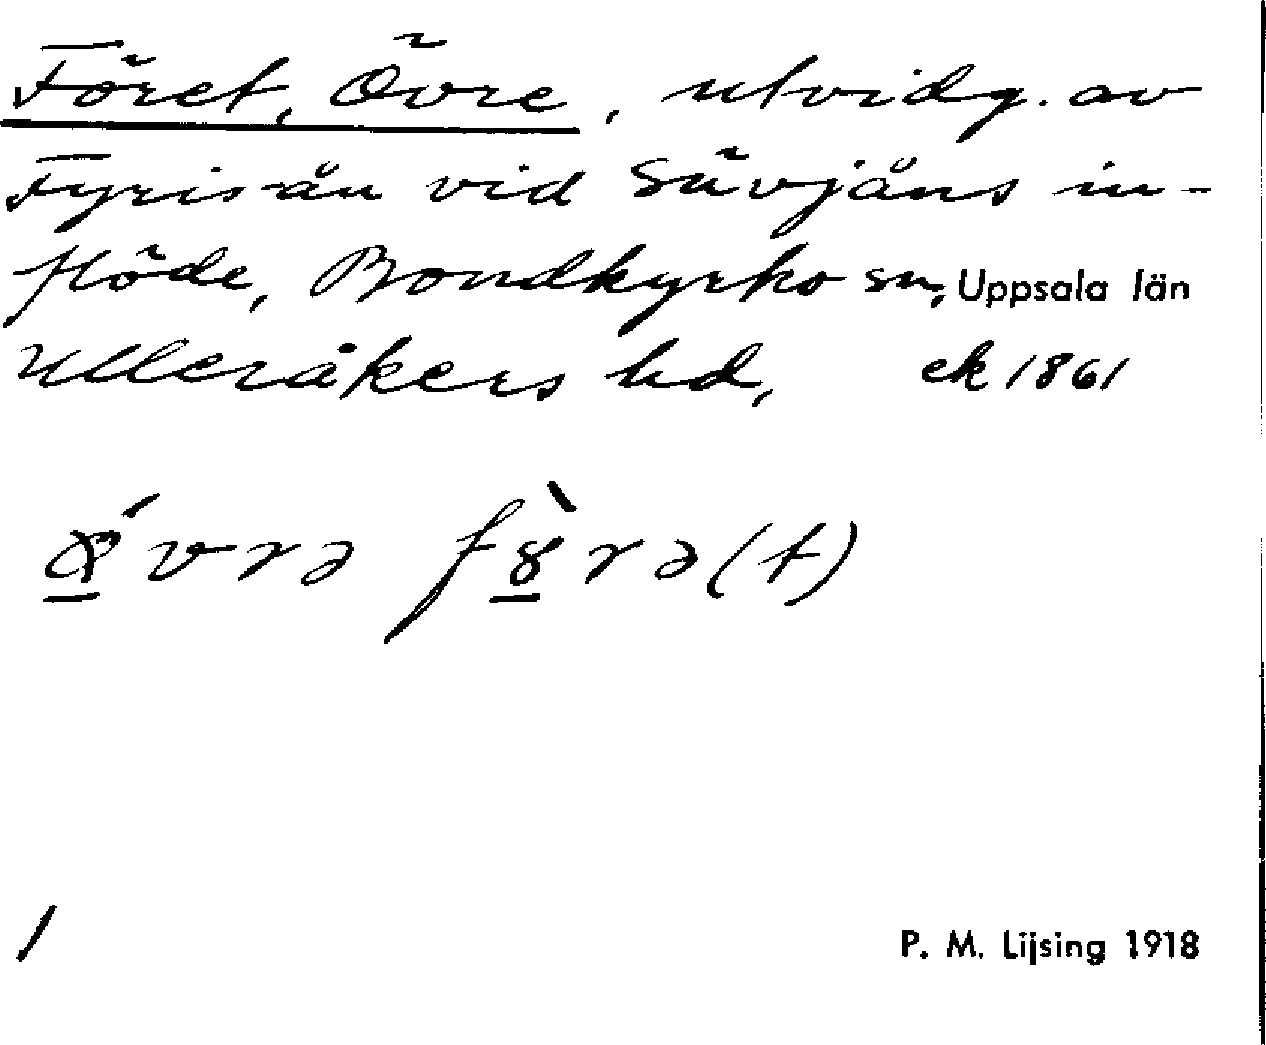 Föret, Övre, utvidg. av
Fyrisån vid Sävjåns in-
flöde, Bondkyrko sn, Uppsala län
Ulleråkers hd, ek 1861
vrə f rə(t)
/
P. M. Lijsing 1918